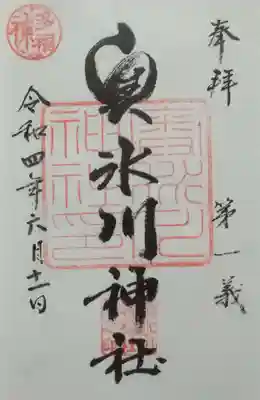 奉拝
第一義
奥氷川神社
令和四年六月十一日